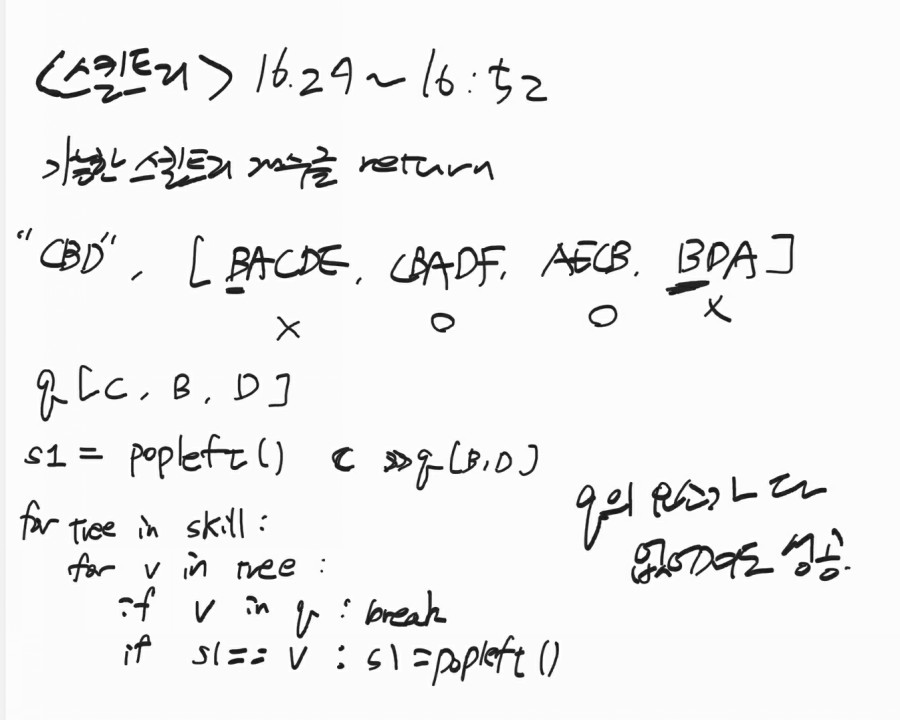 <스킬트리> 16.24 ~ 16:52
가능한 스킬트리 개수를 return
"CBD", [BACDE, CBADF, AECB, BDA]
x o o x
q[C, B, D]
s1 = popleft() C >> q[B,D]
for tree in skill:
for v in tree:
if v in q : break
if s1 == v : s1 = popleft()
q의 원소가 다
없어져도 성공.